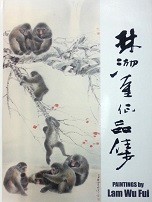 林湖奎作品集
PAINTINGS by
Lam Wu Fui